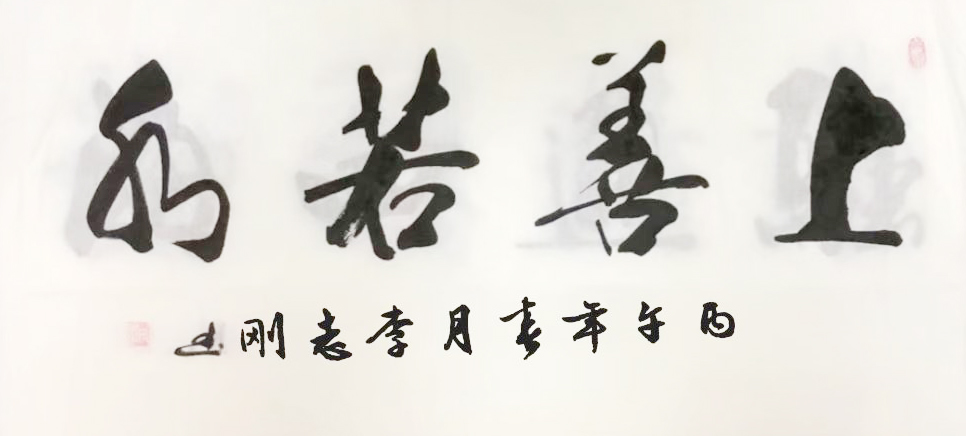 上善若水
丙午年春月李志刚书